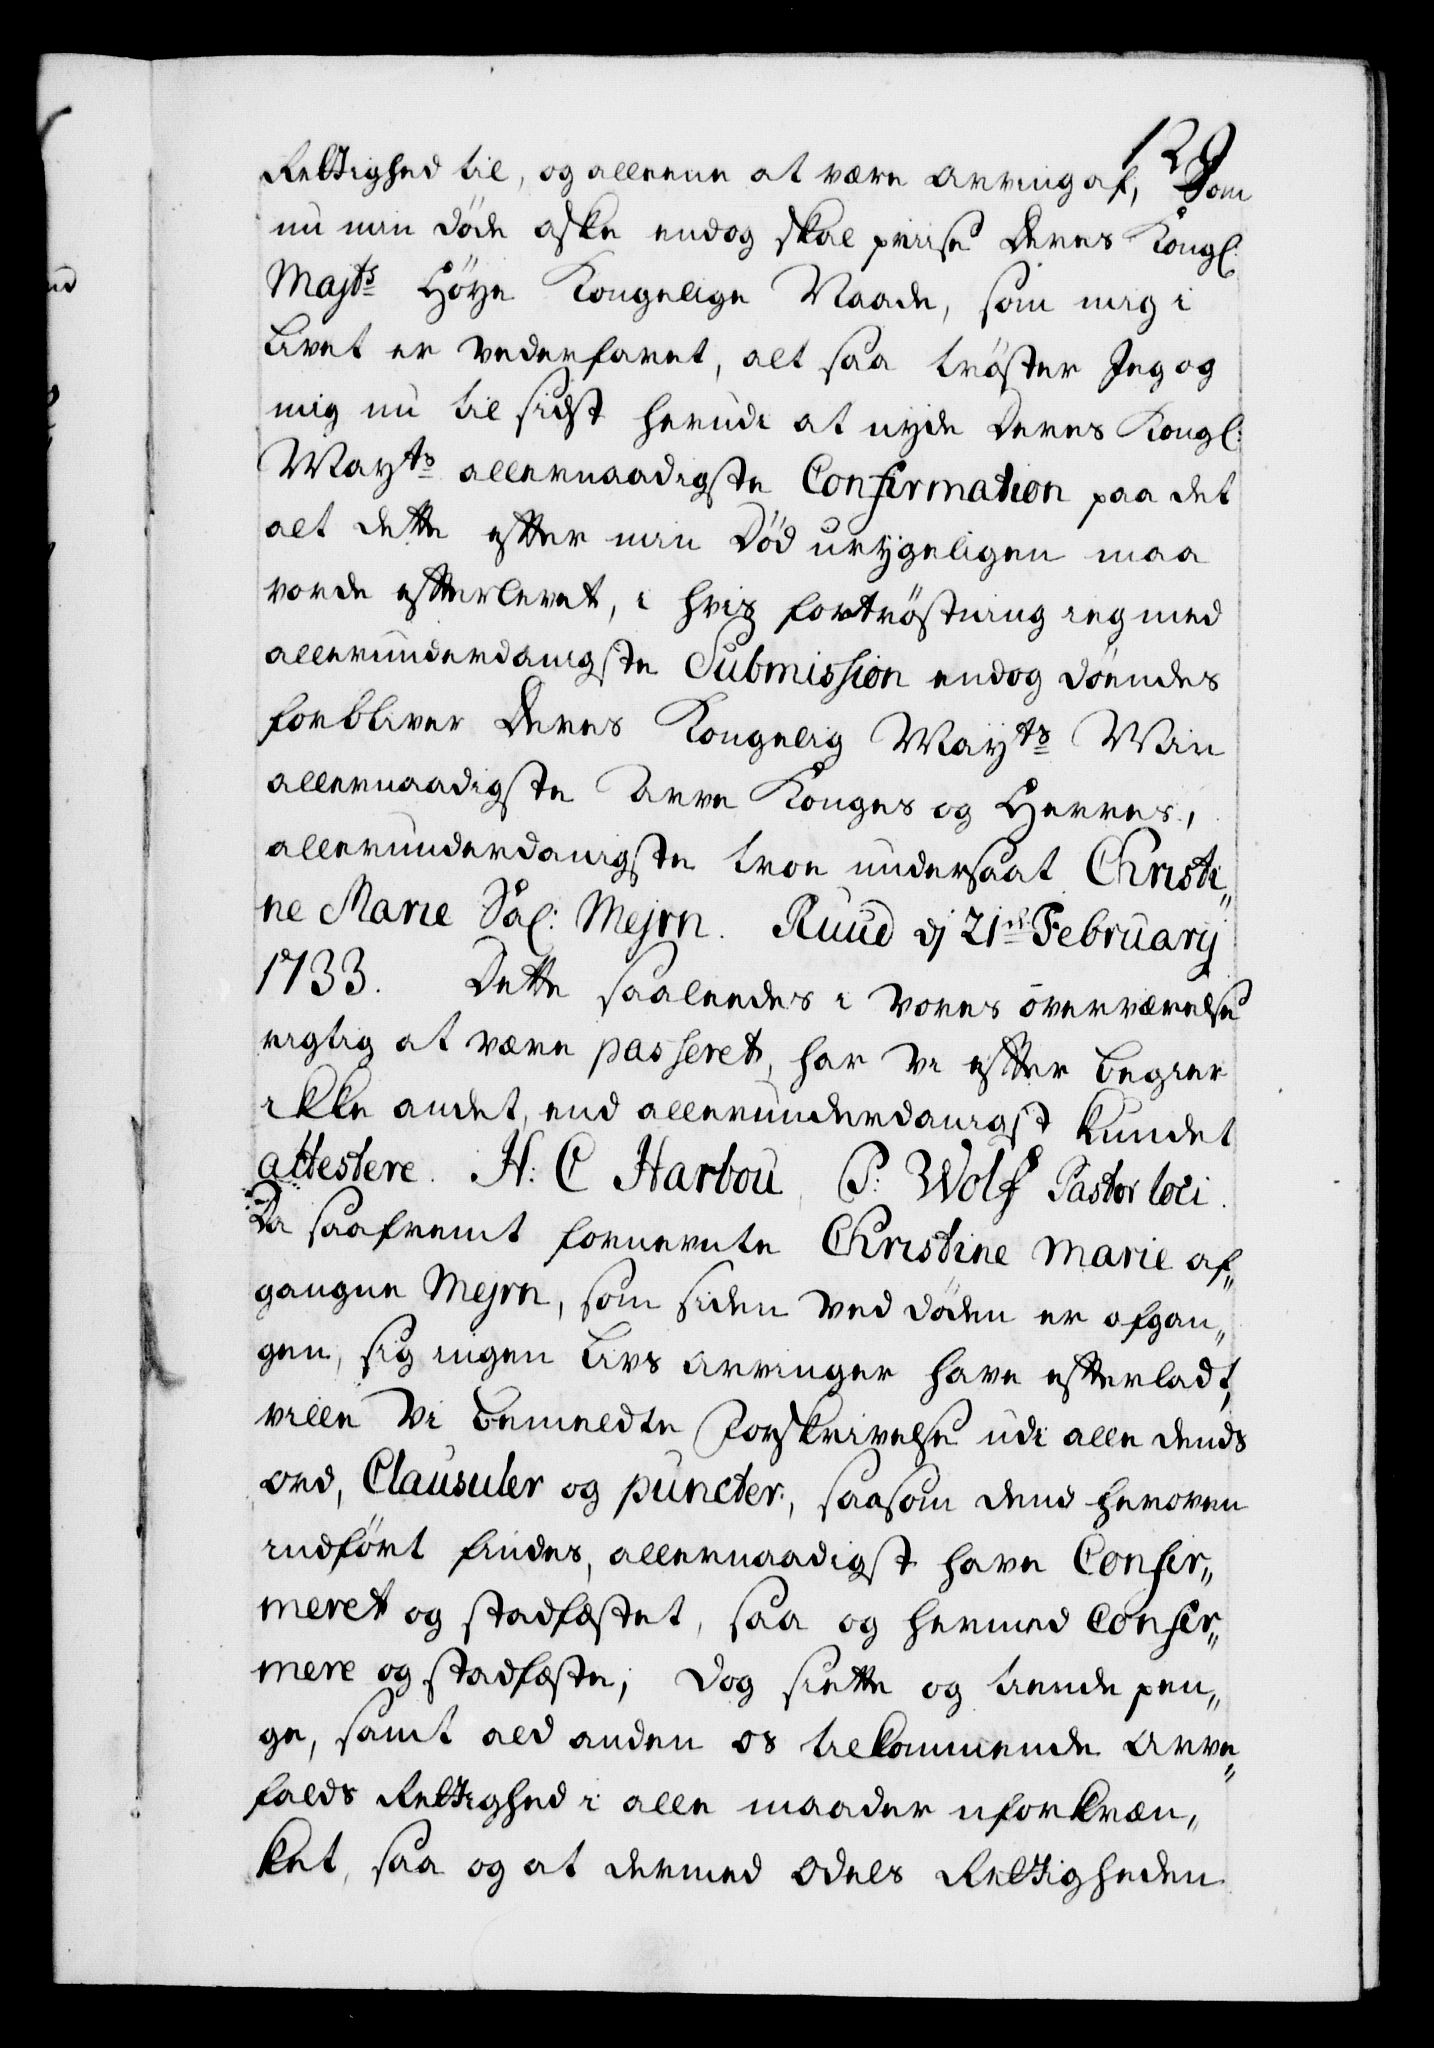 129
Rettighed til, og alleene at være arving af, Som
nu min døde aske endog skal priise Deres Kongl:
Majts Høye Kongelige Naade, som mig i
Livet er vederfaret, alt saa trøster Jeg og
mig nu til sidst herudi at nyde Deres Kongl:
Mayts allernaadigste Confirmation paa det
alt dette efter min Død urygeligen maa
vorde efterlevet, i hvis fortrøstning ieg med
allerunderdanigste Submission endog døendes
forbliver Deres Kongelig Mayts Min
allernaadigste Arve Konges og Herres,
allerunderdanigste troe undersaat Christi„
ne Marie Sål: Mejrn. Ruud dj 21de February
1733. Dette saaleedes i vores overværelse
rigtig at være passeret, har vi efter begier
ikke andet, end allerunderdanigst kundet
attestere. H: C Harbou, P: Wolf Pastor loci.
Da saafremt fornevnte Christine Marie af„
gangne Mejrn, som siden ved døden er afgan„
gen, sig ingen Livs arvinger have efterladt,
ville Vi bemeldte Forskrivelse udi alle dends
ord, Clausuler og puncter, saasom dend heroven
indført findes, allernaadigst have Confir„
meret og stadfæstet, saa og hermed Confir„
mere og stadfæste, Dog siette og tiende pen„
ge, samt ald anden os tilkommende Arve„
falds Rettighed i alle maader uforkræn„
ket, saa og at dermed Odels Rettigheden